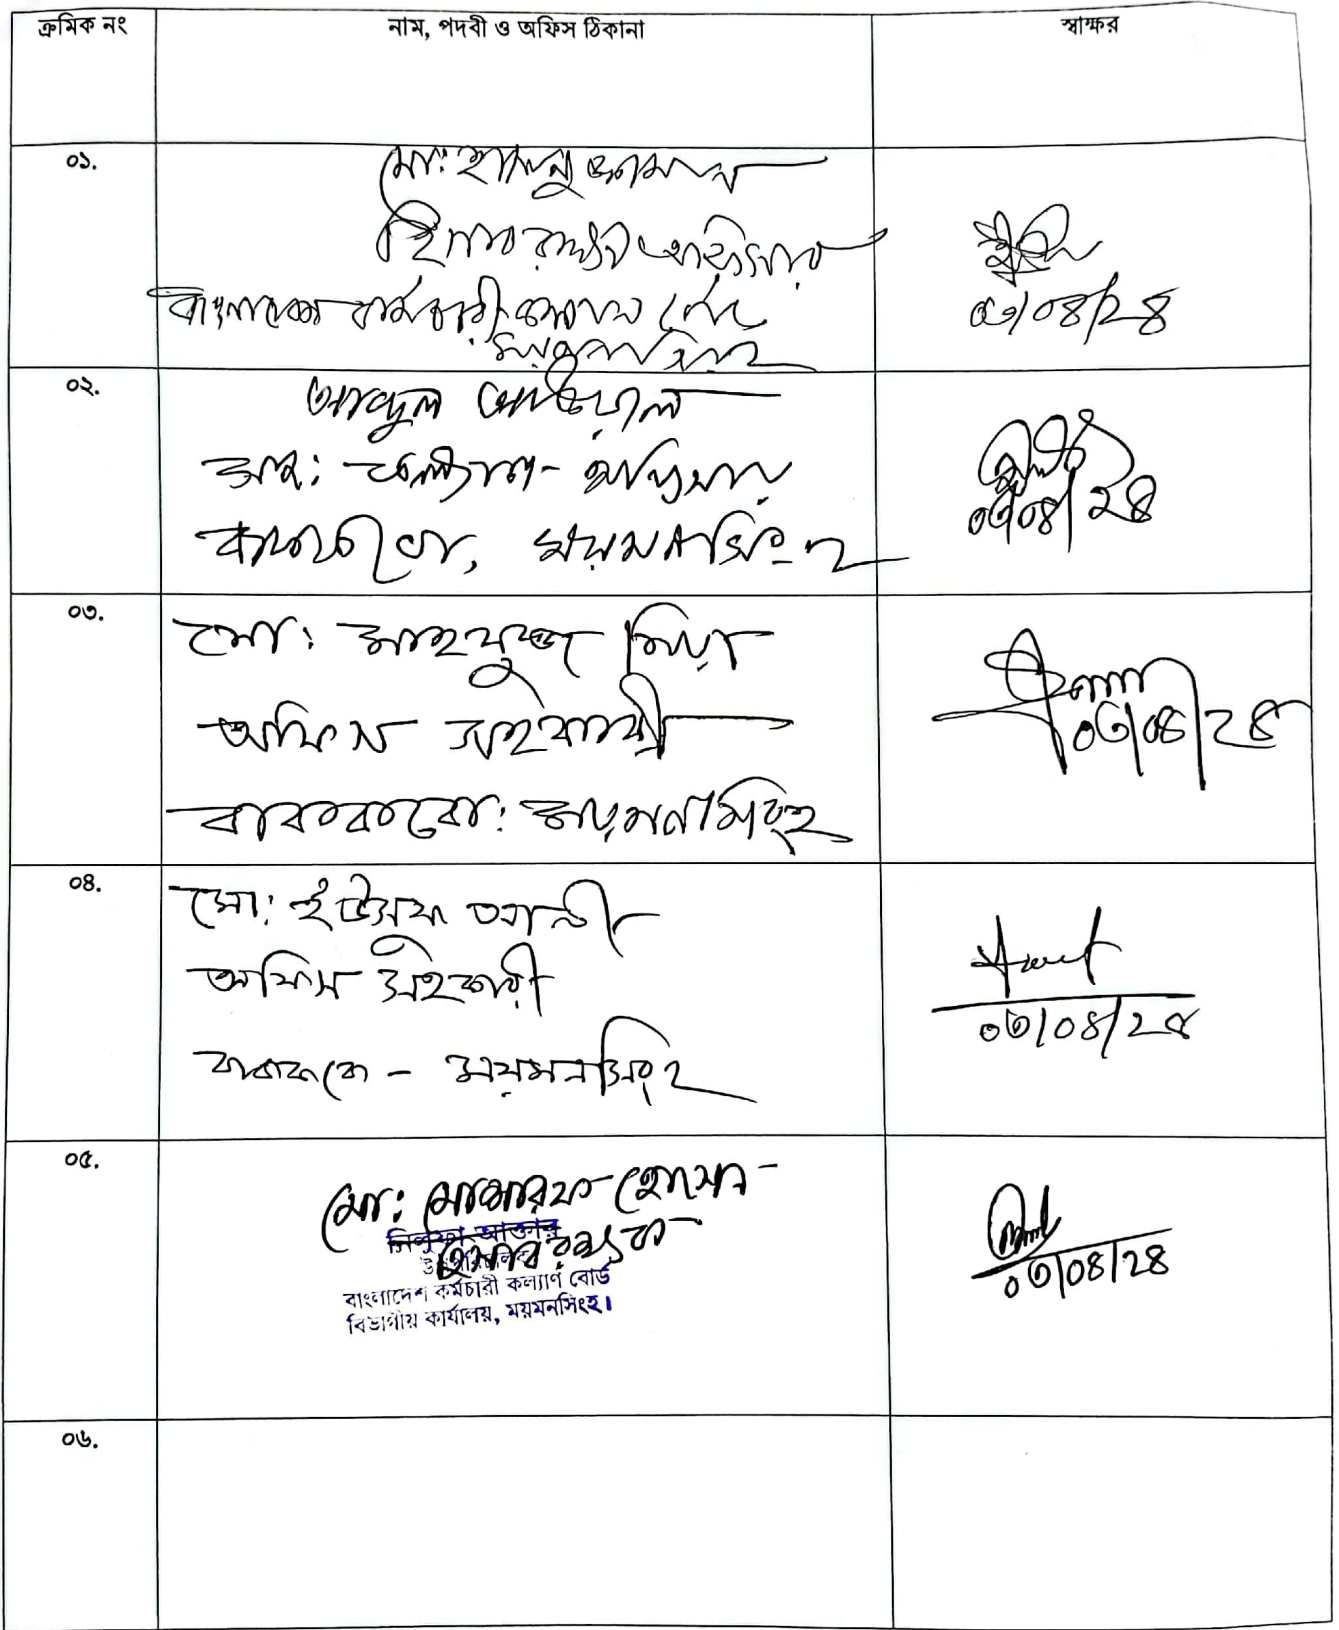 ক্রমিক নং নাম, পদবী ও অফিস ঠিকানা স্বাক্ষর
০১.
মো:
হিসাব রক্ষণ অফিসার
কর্মচারী কল্যাণ বোর্ড
ময়মনসিংহ
০৩/০৪/২৪
০২.
আব্দুল আউয়াল
সহ: কল্যাণ অফিসার
ময়মনসিংহ
০৩/০৪/২৪
০৩.
মো: মিয়া
অফিস সহকারী
বাককবো: ময়মনসিংহ
০৩/০৪/২৪
০৪.
মো: ইউসুফ আলী
অফিস সহকারী
বাককবো - ময়মনসিংহ
০৩/০৪/২৪
০৫.
মো: মোশারফ হোসেন
নিলুফা আক্তার
হিসাব রক্ষক
উপপরিচালক
বাংলাদেশ কর্মচারী কল্যাণ বোর্ড
বিভাগীয় কার্যালয়, ময়মনসিংহ।
০৩/০৪/২৪
০৬.